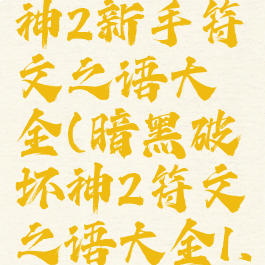 神2新手符
文之语大
全(暗黑破
坏神2符文
之语大全1.